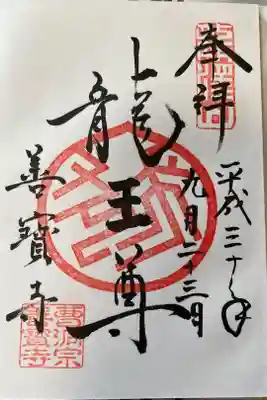 奉拝
平成三十年
九月二十三日
龍王尊
善寳寺
曹洞宗
善寳寺